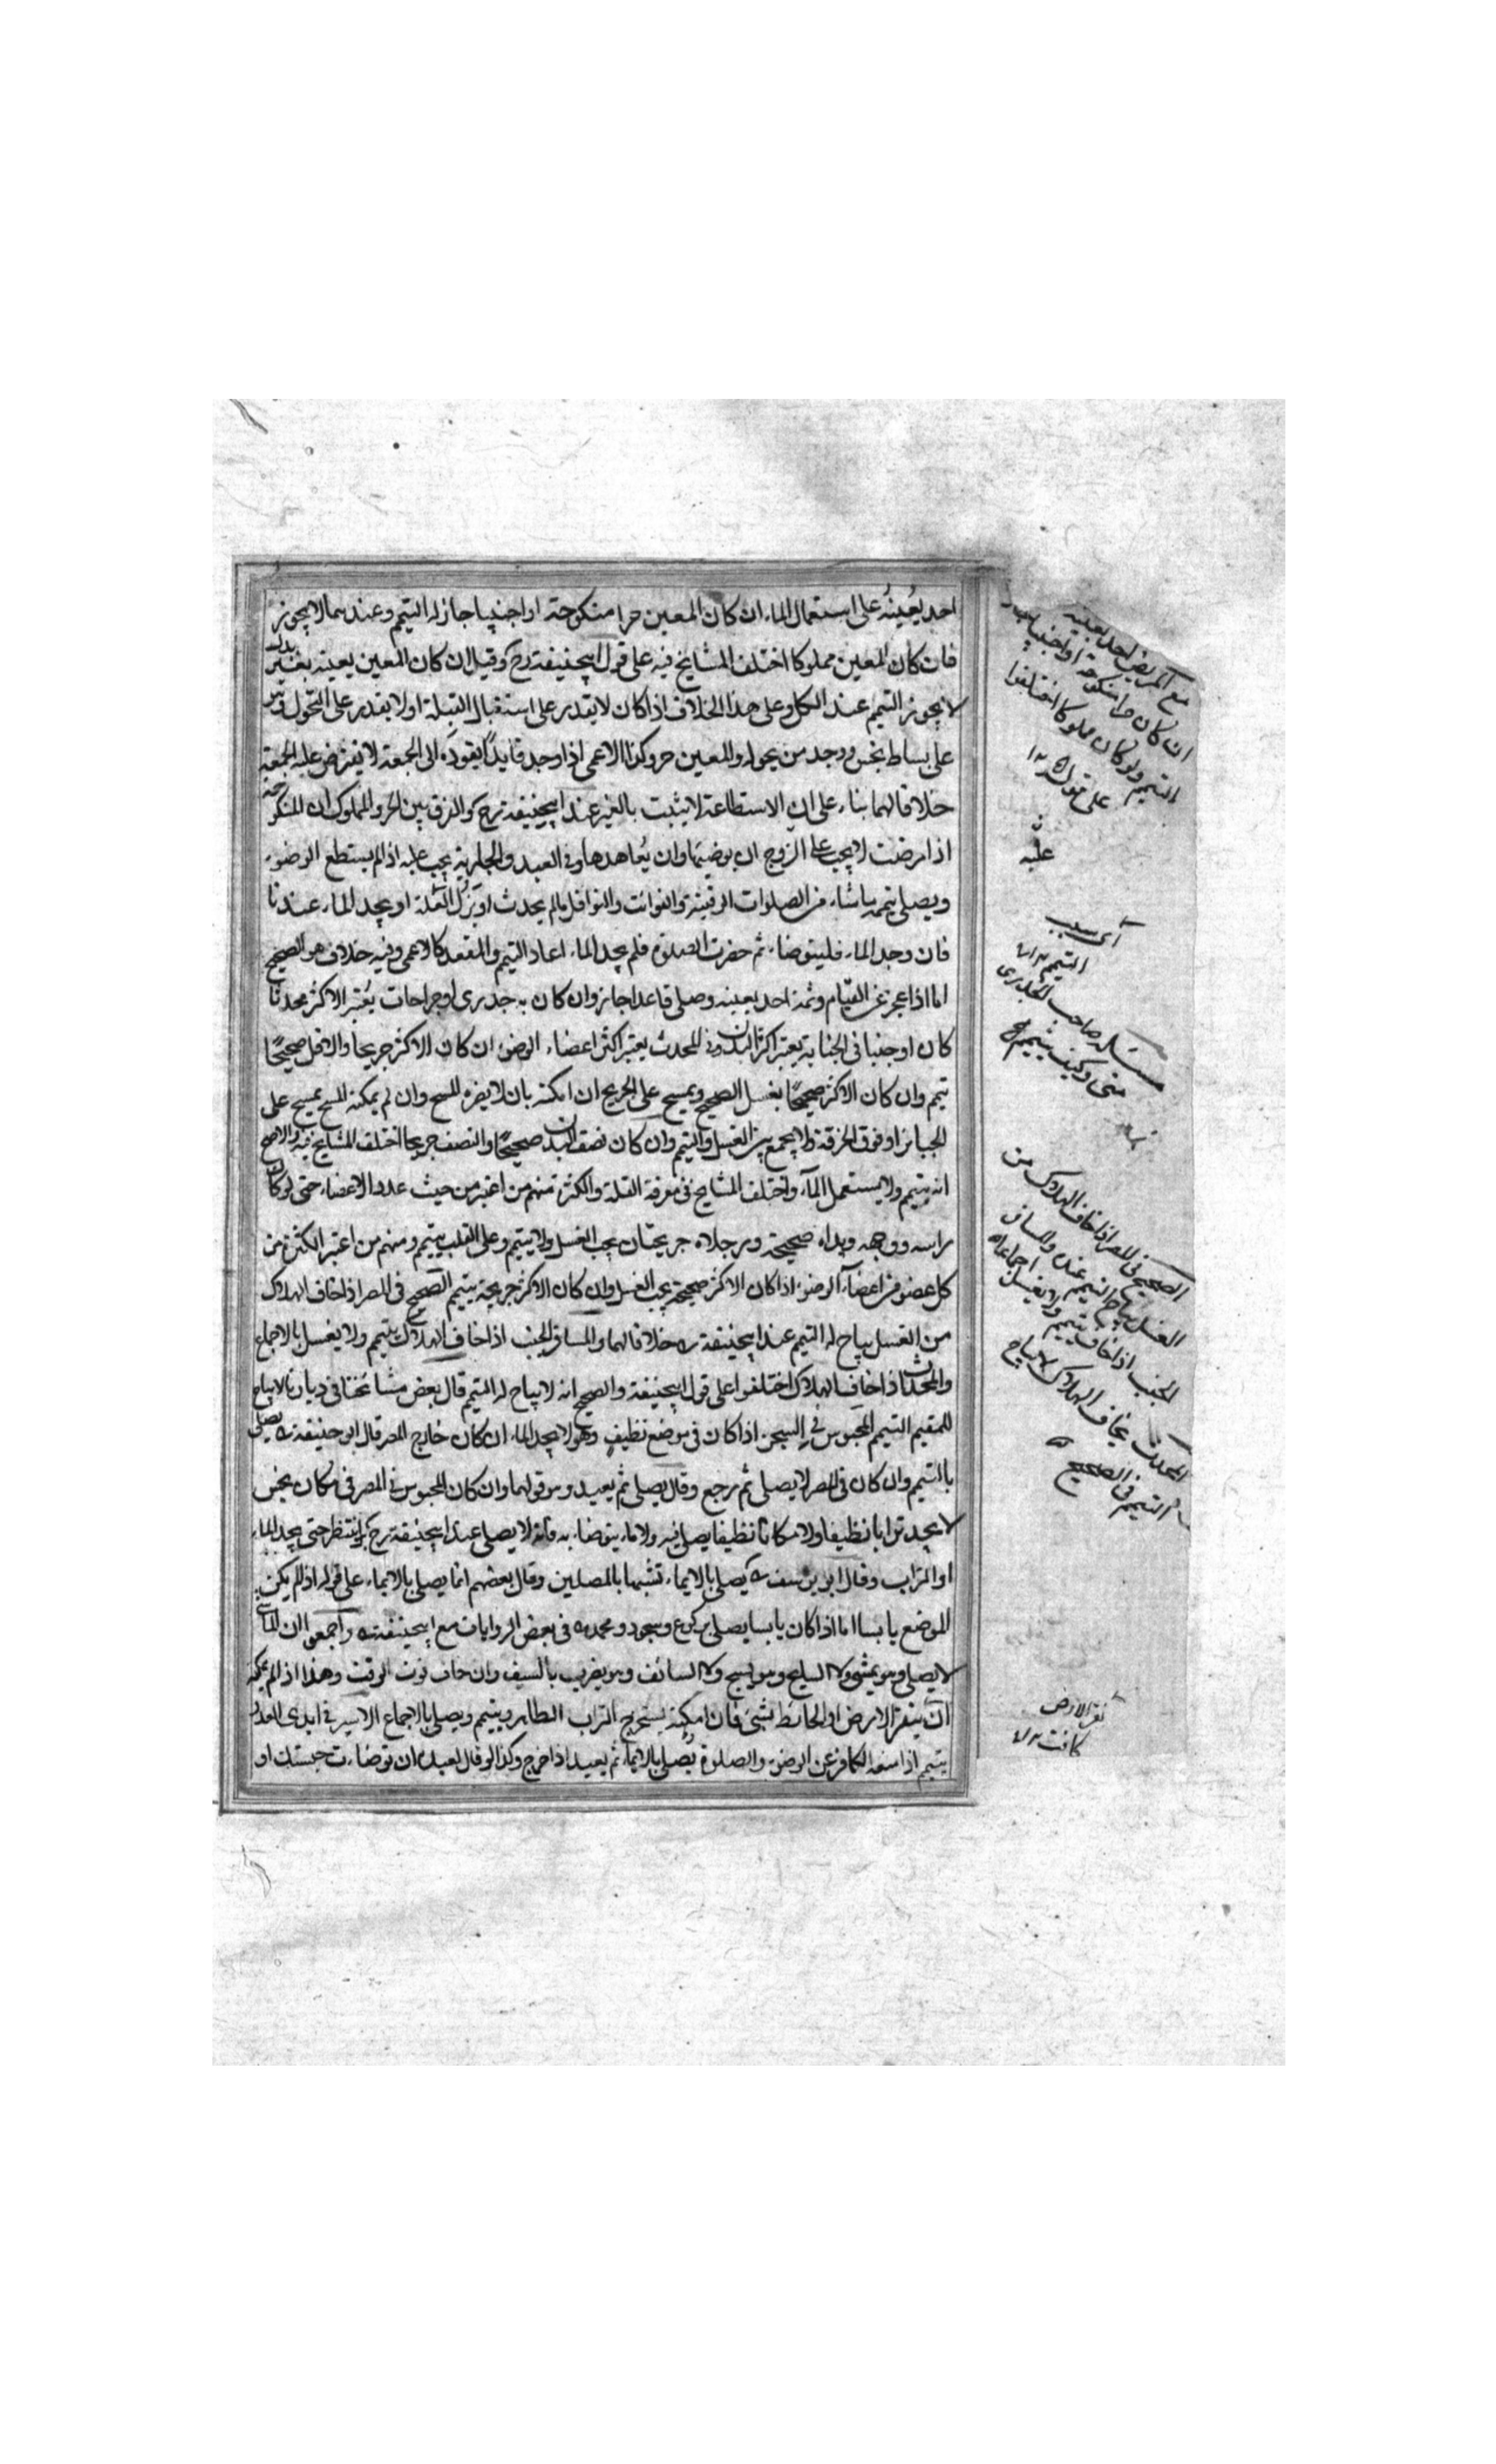 احد يُعينهُ على استعمال الماء ان كان المعين حرا منكوحته او اجنبيا جاز له التيمم وعندهما لا يجوز
فان كان المعين مملوكا اختلف المشايخ فيه على قول ابيحنيفة رح وقيل ان كان المعين يعينه بغير بدل
لا يجوز التيمم عند الكل وعلى هذا الخلاف اذا كان لا يقدر على استقبال القبلة او لا يقدر على التحول وهو
على بساط نجس ووجد من يحوله والمعين حر وكذا الاعمى اذا وجد قايدًا يقوده الى الجمعة لا يفترض عليه الجمعة
خلافا لهما بناء على ان الاستطاعة لا يثبت بالغير عند ابيحنيفة رح والفرق بين الحر والمملوك ان المنكوحة
اذا مرضت لا يجب على الزوج ان يوضيها وان يُعاهدها وفي العبد والجارية يجب عليه اذا لم يستطع الوضوء
ويصلى بتيممه ما شاء من الصلوات الوقتية والفوائت والنوافل ما لم يحدث او يزل العلة او يجد الماء عندنا
فان وجد الماء فليتوضاء ثم حضرت الصلوة فلم يجد الماء اعاد التيمم والمقعد كالاعمى وفيه خلاف هو الصحيح
اما اذا عجز عن القيام وثمة احد يعينه وصلى قاعدا جاز وان كان به جدرى او جراحات يُعتبر الاكثر محدثا
كان او جنبا فى الجنابة يعتبر اكثر البدن وفى المحدث يعتبر اكثر اعضاء الوضوء ان كان الاكثر جريحا والاقل صحيحًا
تيمم وان كان الاكثر صحيحًا يغسل الصحيح ويمسح على الجريح ان امكنه بان لا يضره المسح وان لم يمكنه المسح يمسح على
الجبائر او فوق الخرقة ولا يجمع بين الغسل والتيمم وان كان نصف البدن صحيحًا والنصف جريحا اختلف المشايخ فيه والاصح
انه يتيمم ولا يستعمل المآء واختلف المشايخ فى معرفة القلة والكثرة منهم من اعتبر من حيث عدد الاعضاء حتى لو كان
راسه ووجهه ويداه صحيحة ورجلاه جريحتان يجب الغسل ولا يتيمم وعلى القلب يتيمم ومنهم من اعتبر الكثرة من
كل عضو من اعضآء الوضوء اذا كان الاكثر صحيحة يجب الغسل وان كان الاكثر جريحة يتيمم الصحيح فى المصر اذا خاف الهلاك
من الغسل يباح له التيمم عند ابيحنيفة ره خلافا لهما والمسافر الجنب اذا خاف الهلاك يتيمم ولا يغسل بالاجماع
والمحدث اذا خاف الهلاك اختلفوا على قول ابيحنيفة والصحيح انه لا يباح له التيمم قال بعض مشائخنا فى ديارنا لا يباح
للمقيم التيمم المحبوس فى السجن اذا كان فى موضع نظيف وهو لا يجد الماء ان كان خارج المصر قال ابو حنيفة ره يصلى
باالتيمم وان كان فى المصر لا يصلى ثم رجع وقال يصلى ثم يعيد وهو قولهما وان كان المحبوس فى المصر فى مكان نجس
لا يجد ترابا نظيفا ولا مكانا نظيفا يصلى فيه ولا ماء يتوضاء به فانه لا يصلى عند ابيحنيفة رح بل ينتظر حتى يجد الماء
او التراب وقال ابو يوسف ره يصلى بالايماء تشبها بالمصلين وقال بعضهم انما يصلى بالايماء على قوله اذا لم يكن
الموضع يابسا اما اذا كان يابسا يصلى بركوع وسجود ومحمد ره فى بعض الروايات مع ابيحنيفة ره واجمعوا ان الماشى
لا يصلى وهو يمشى ولا السابح وهو يسبح ولا السائف وهو يضرب بالسيف وان خاف فوت الوقت وهذا اذا لم يمكنه
ان ينقر الارض او الحائط بشىء فان امكنه يستخرج التراب الطاهر ويتيمم ويصلى بالاجماع الاسير فى ايدى العدو
يتيمم اذا منعه الكافر عن الوضوء والصلوة يُصلى بالايماء ثم يعيد اذا خرج وكذا لو قال لعبده ان توضاءت حبستك او
مع المريض احد يعينه
ان كان حرا منكوحته او اجنبيا
التيمم ولو كان مملوكا اختلفوا
على قوله ١٢
عليه
اى سبب
التيمم ١٢
مسئله صاحب الجدرى
متى وكيف يتيمم
الصحيح فى المصر اذا خاف الهلاك من
الغسل يباح التيمم عنده والمسافر
الجنب اذا خاف يتيمم ولا يغسل اجماعا
المحدث يخاف الهلاك لا يباح
التيمم فى الصحيح
نقر الارض
كافت ١٢